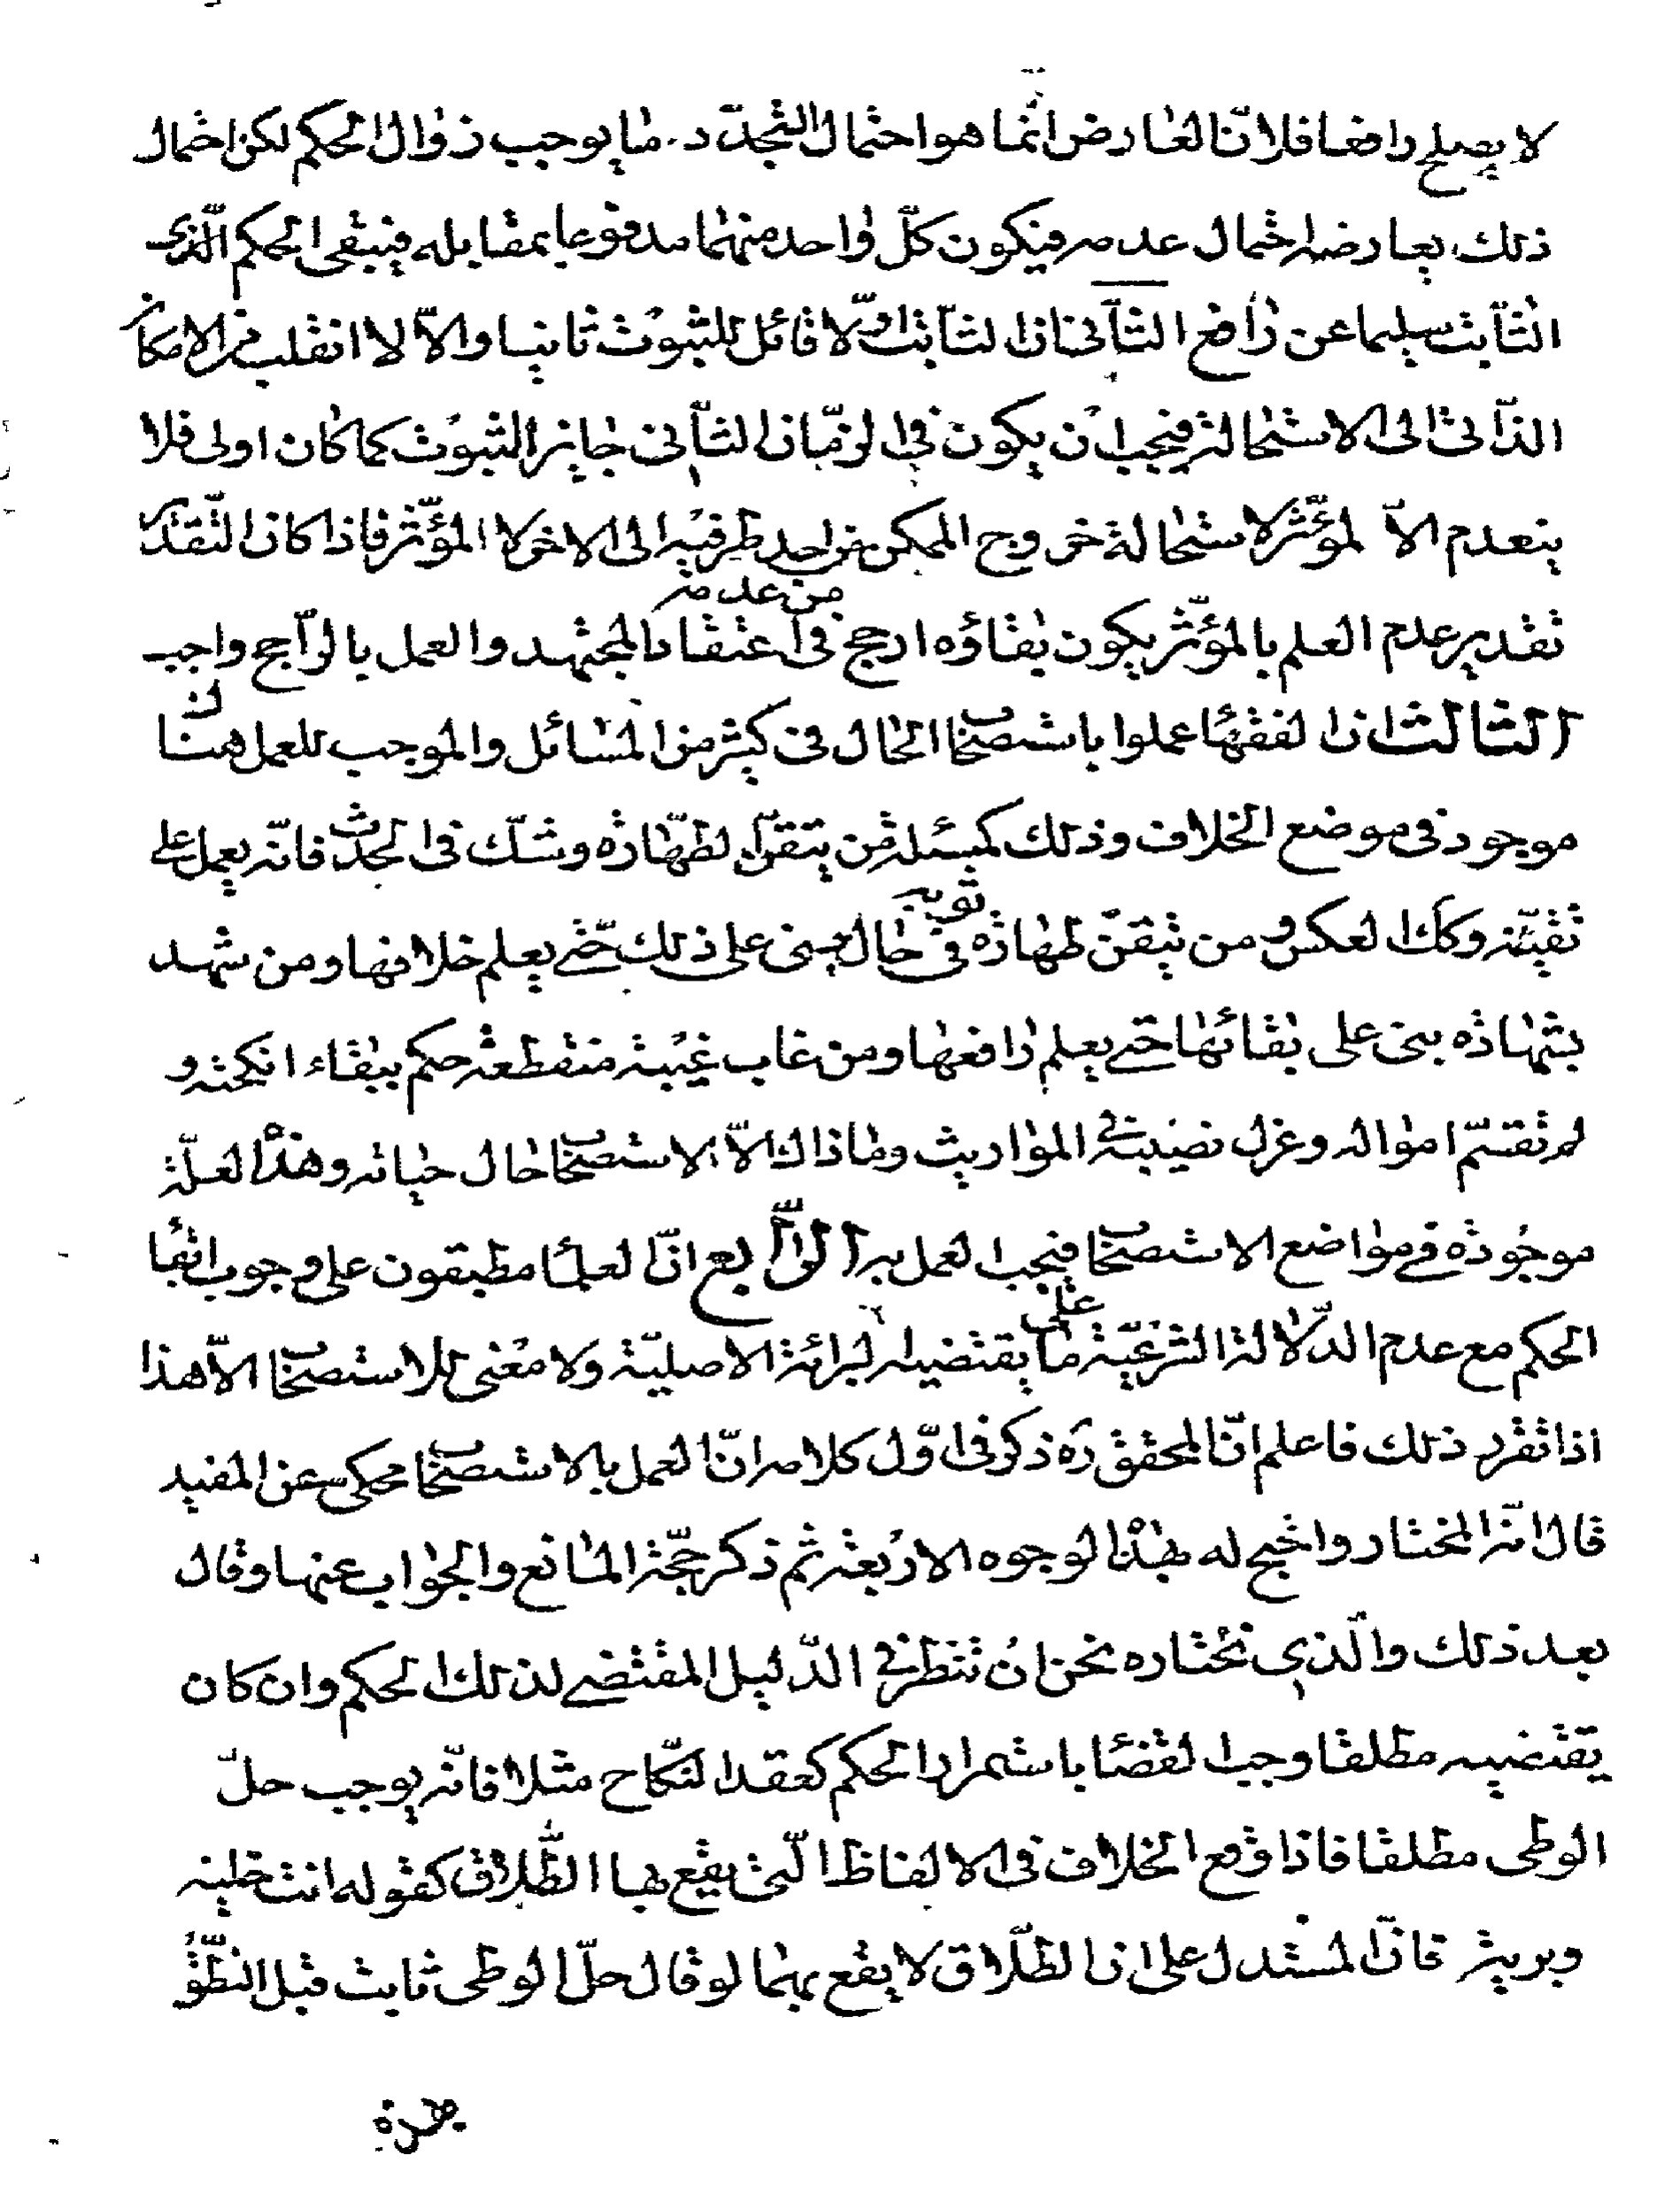 لا يصلح رافعا فلانّ العارض انّما هو احتمال التجدّد ما يوجب زوال الحكم لكن احتمال
ذلك يعارضه احتمال عدمه فيكون كلّ واحد منهما مدفوعا بمقابله فيبقى الحكم الّذى
الثابت سليما عن رافع الثّانى ان الثّابت اوّلا قائل للثبوت ثانيا والاّ لانقلب من الامكان
الذّاتى الى الاستحالة فيجب ان يكون فى الزّمان الثّانى جايز الثبوت كما كان اولى فلا
ينعدم الاّ لمؤثّر لاستحالة خروج الممكن من احد طرفيه الى الاخر لا المؤثّر فاذا كان التّقدير
من عدمه
تقدير عدم العلم بالمؤثّر يكون بقاؤه ارجح فى اعتقاد المجتهد والعمل بالرّاجح واجب
الثالث ان الفقهاء عملوا باستصحاب الحال فى كثير من المسائل والموجب للعمل هناك
موجود فى موضع الخلاف وذلك كمسئلة من يتقن الطّهارة وشكّ فى الحدث فانّه يعمل على
يقينه وكذا العكس ومن تيقن طهارة ثوبه فى حال بنى على ذلك حتّى يعلم خلافها ومن شهد
بشهادة بنى على بقائها حتى يعلم رافعها ومن غاب غيبة منقطعة حكم ببقاء انكحته و
لم تقسّم امواله وعزل نصيبه فى المواريث وما ذاك الاّ لاستصحاب حال حياته وهذه العلّة
موجودة فى مواضع الاستصحاب فيجب العمل به الرّابع انّ العلماء مطبقون على وجوب ابقاء
الحكم مع عدم الدّلالة الشرعيّة على ما يقتضيه البرائة الاصليّة ولا معنى للاستصحاب الاّ هذا
اذا تقرر ذلك فاعلم انّ المحقق ره ذكر فى اوّل كلامه انّ العمل بالاستصحاب محكى عن المفيد
قال انّه المختار واحتج له بهذه الوجوه الاربعة ثم ذكر حجّة المانع والجواب عنها وقال
بعد ذلك والّذي نختاره نحن ان ننظر فى الدّليل المقتضى لذلك الحكم وان كان
يقتضيه مطلقا وجب القضاء باستمرار الحكم كعقد النّكاح مثلا فانّه يوجب حلّ
الوطى مطلقا فاذا وقع الخلاف فى الالفاظ الّتى يقع بها الطّلاق كقوله انت خلية
وبرية فانّ المستدل على ان الطّلاق لا يقع بهما لو قال حلّ الوطى ثابت قبل النّطق
بهذه